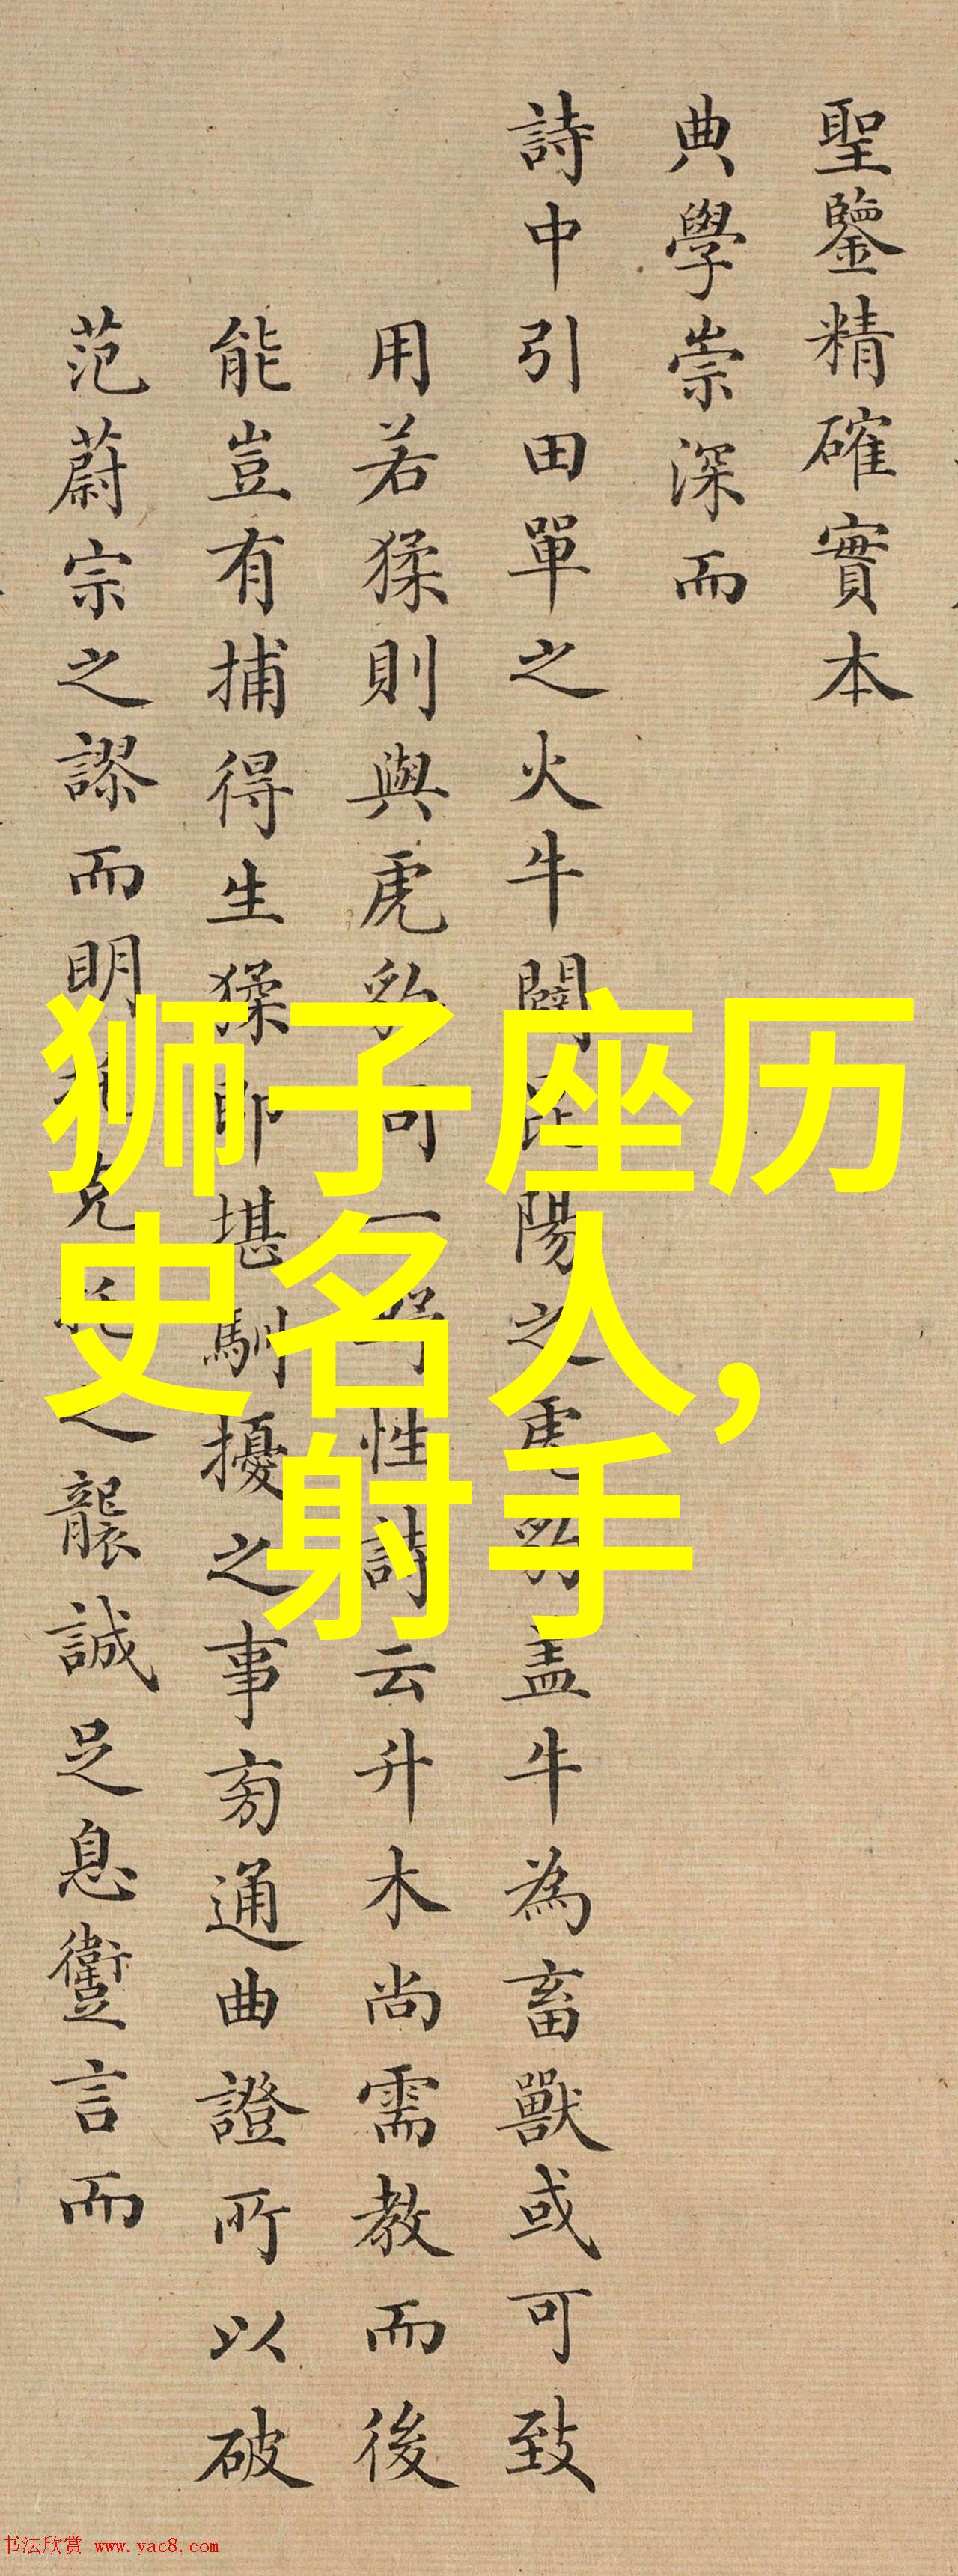 聖鑒精確實本
典學崇深而
詩中引田單之火牛闢昆陽之虎豹盖牛為畜獸或可致
用若猱則與虎豹同一野性詩云升木尚需教而後
能豈有捕得生猱即堪馴擾之事旁通曲證所以破
范蔚宗之謬而明克之襲誠足息讆言而
狮子座历
史名人，
射手
书法欣赏 www.yac8.com